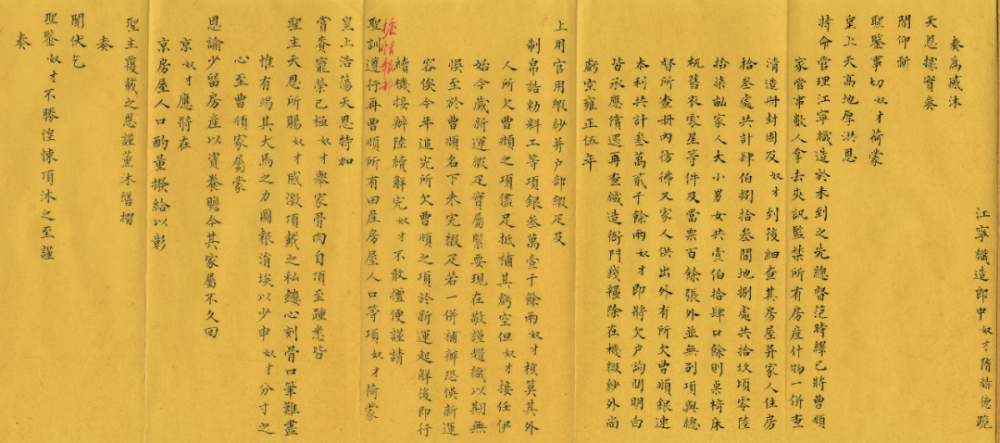 江寧織造郎中奴才隋赫德跪
奏為感沐
天恩據實奏
聞仰祈
聖鑒事切奴才荷蒙
皇上天高地厚洪恩
特命管理江寧織造於未到之先總督范時繹已將曹頫
家管事數人拿去夾訊監禁所有房產什物一併查
清造冊封固及奴才到後細查其房屋并家人住房
拾叁處共計肆佰捌拾叁間地捌處共拾玖頃零陸
拾柒畝家人大小男女共壹佰拾肆口餘則桌椅床
杌舊衣零星等件及當票百餘張外並無別項與總
督所查冊內彷彿又家人供出外有所欠曹頫銀連
本利共計叁萬貳千餘兩奴才即將欠戶詢問明白
皆承應償還再查織造衙門錢糧除在機緞紗外尚
虧空雍正伍年
上用官用緞紗并戶部緞疋及
制帛誥勅料工等項銀叁萬壹千餘兩奴才核莫其外
人所欠曹頫之項儘足抵補其虧空但奴才接任伊
始今歲新運緞疋實屬緊要現在敬謹趲織以期無
悞至於曹頫名下未完緞疋若一併補辦恐悞新運
容俟今年追完所欠曹頫之項於新運起解後即行
續機接辦陸續解完奴才不敢擅便謹請
聖訓遵行再曹頫所有田產房屋人口等項奴才荷蒙
皇上浩蕩天恩特加
賞賚寵榮已極奴才舉家骨肉自頂至踵悉皆
聖主天恩所賜奴才感激頂戴之私鏤心刻骨口筆難盡
惟有竭其犬馬之力圖報涓埃以少申奴才分寸之
心至曹頫家屬蒙
恩諭少留房產以資養贍今其家屬不久回
京奴才應將在
京房屋人口酌量撥給以彰
聖主覆載之恩謹熏沐繕摺
奏
聞伏乞
聖鑒奴才不勝惶悚頂沐之至謹
奏